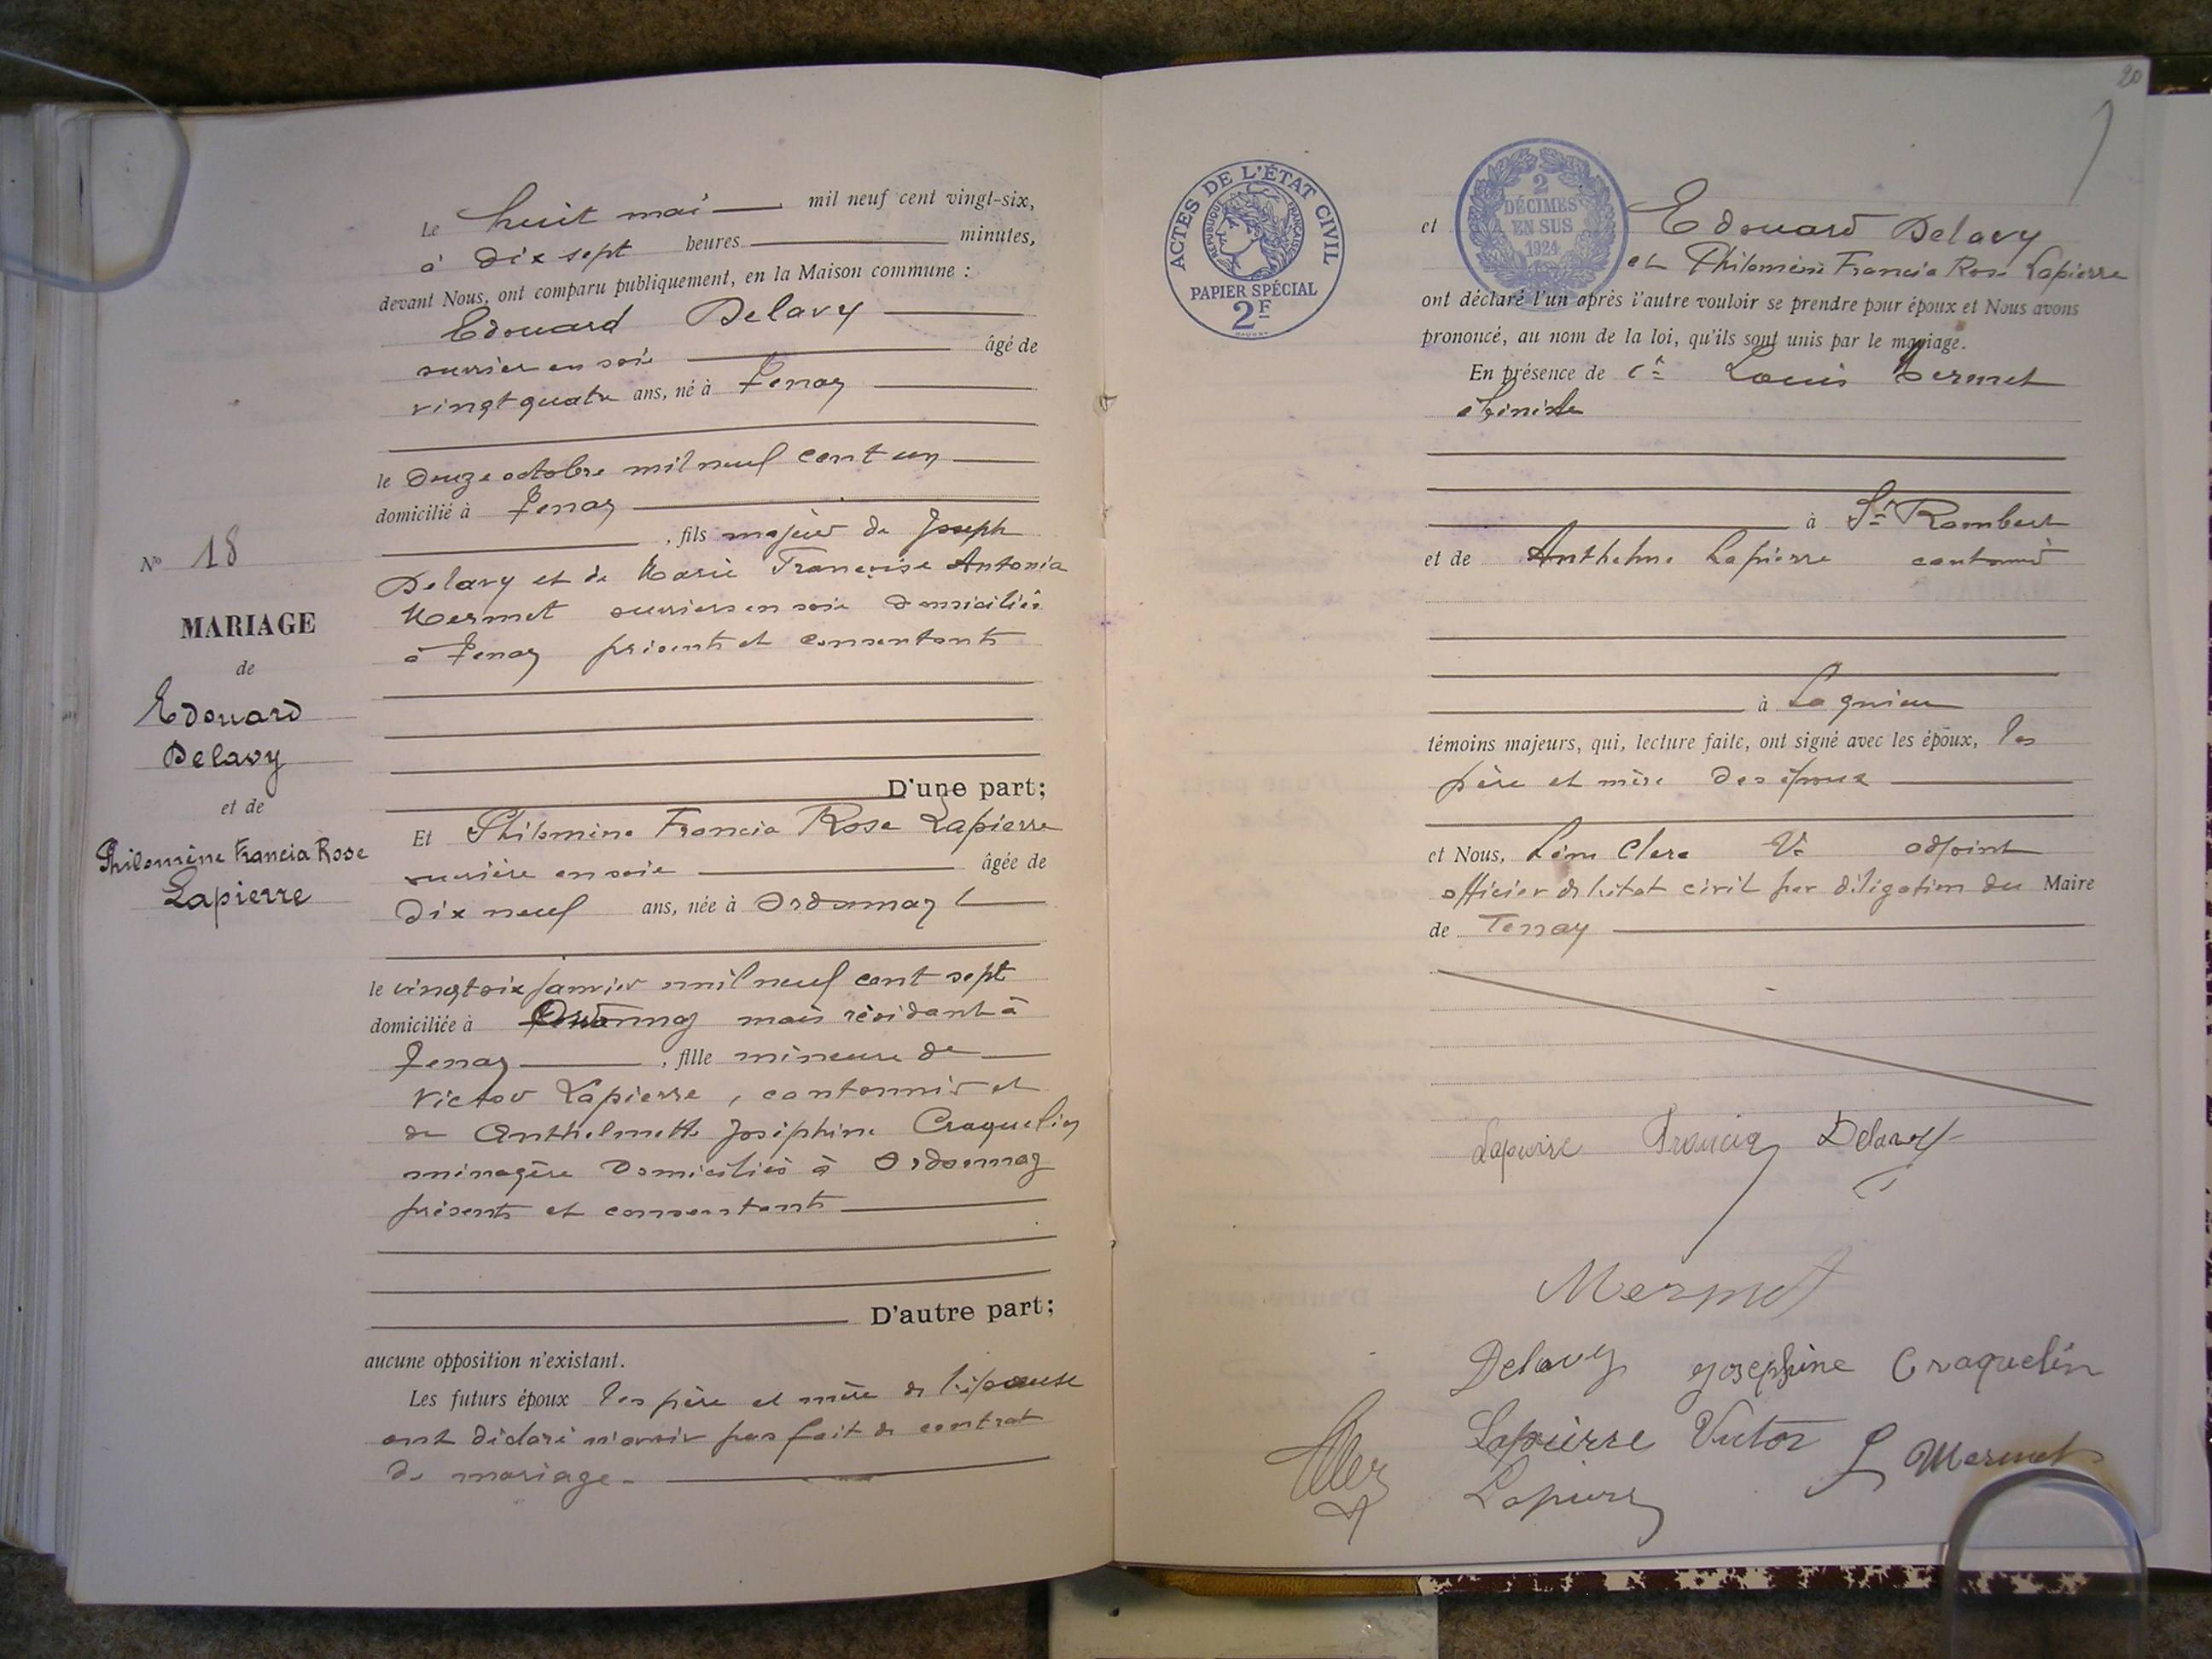 Le huit mai mil neuf cent vingt-six,
à dix sept heures minutes,
devant Nous, ont comparu publiquement, en la Maison commune :
Edouard Delavy
ouvrier en soie âgé de
vingt quatre ans, né à Tenay
le douze octobre mil neuf cent un
domicilié à Tenay
, fils majeur de Joseph
Delavy et de Marie Françoise Antonia
Mermet ouvriers en soie domiciliés
à Tenay présents et consentants
D'une part;
Et Philomène Francia Rose Lapierre
ouvrière en soie âgée de
dix neuf ans, née à Ordonnaz
le vingt six janvier mil neuf cent sept
domiciliée à Ordonnaz mais résidant à
Tenay , fille mineure de
Victor Lapierre, cantonnier et
de Anthelmette Joséphine Craquelin
ménagère domiciliés à Ordonnaz
présents et consentants
D'autre part;
aucune opposition n'existant.
Les futurs époux les père et mère de l'épouse
ont déclaré n'avoir pas fait de contrat
de mariage.
No 18
MARIAGE
de
Edouard
Delavy
et de
Philomène Francia Rose
Lapierre
20
ACTES DE L'ÉTAT CIVIL
RÉPUBLIQUE FRANÇAISE
PAPIER SPÉCIAL
2F
2
DÉCIMES
EN SUS
1924
et Edouard Delavy
et Philomène Francia Rose Lapierre
ont déclaré l'un après l'autre vouloir se prendre pour époux et Nous avons
prononcé, au nom de la loi, qu'ils sont unis par le mariage.
En présence de Louis Mermet
ébéniste
à St Rambert
et de Anthelme Lapierre cantonnier
à Lagnieu
témoins majeurs, qui, lecture faite, ont signé avec les époux, les
père et mère des époux
et Nous, Léon Clerc adjoint
officier de l'état civil par délégation du Maire
de Tenay
Lapierre Francia Delavy
Mermet
Delavy Josephine Craquelin
Lapierre Victor L Mermet
Lapierre